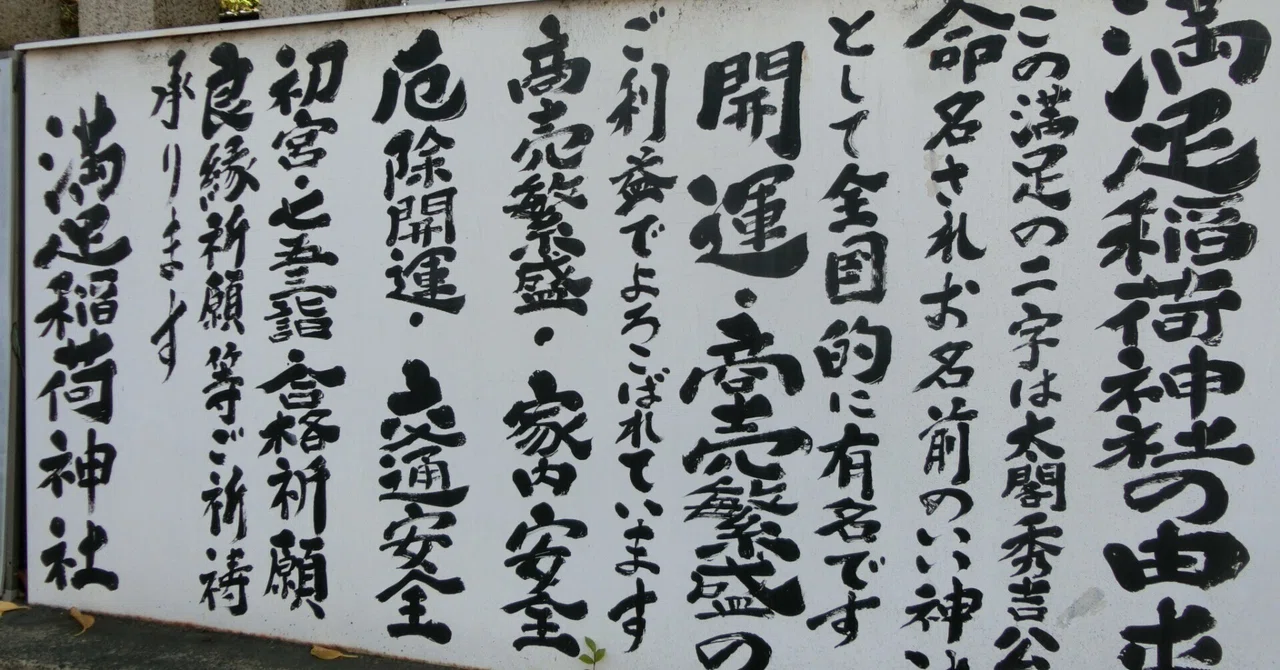 満足稲荷神社の由来
この満足の二字は太閤秀吉公
命名されお名前のいい神社
として全国的に有名です
開運・商売繁盛の
ご利益でよろこばれています
商売繁盛・家内安全
厄除開運・交通安全
初宮・七五三詣 合格祈願
良縁祈願等ご祈祷
承ります
満足稲荷神社